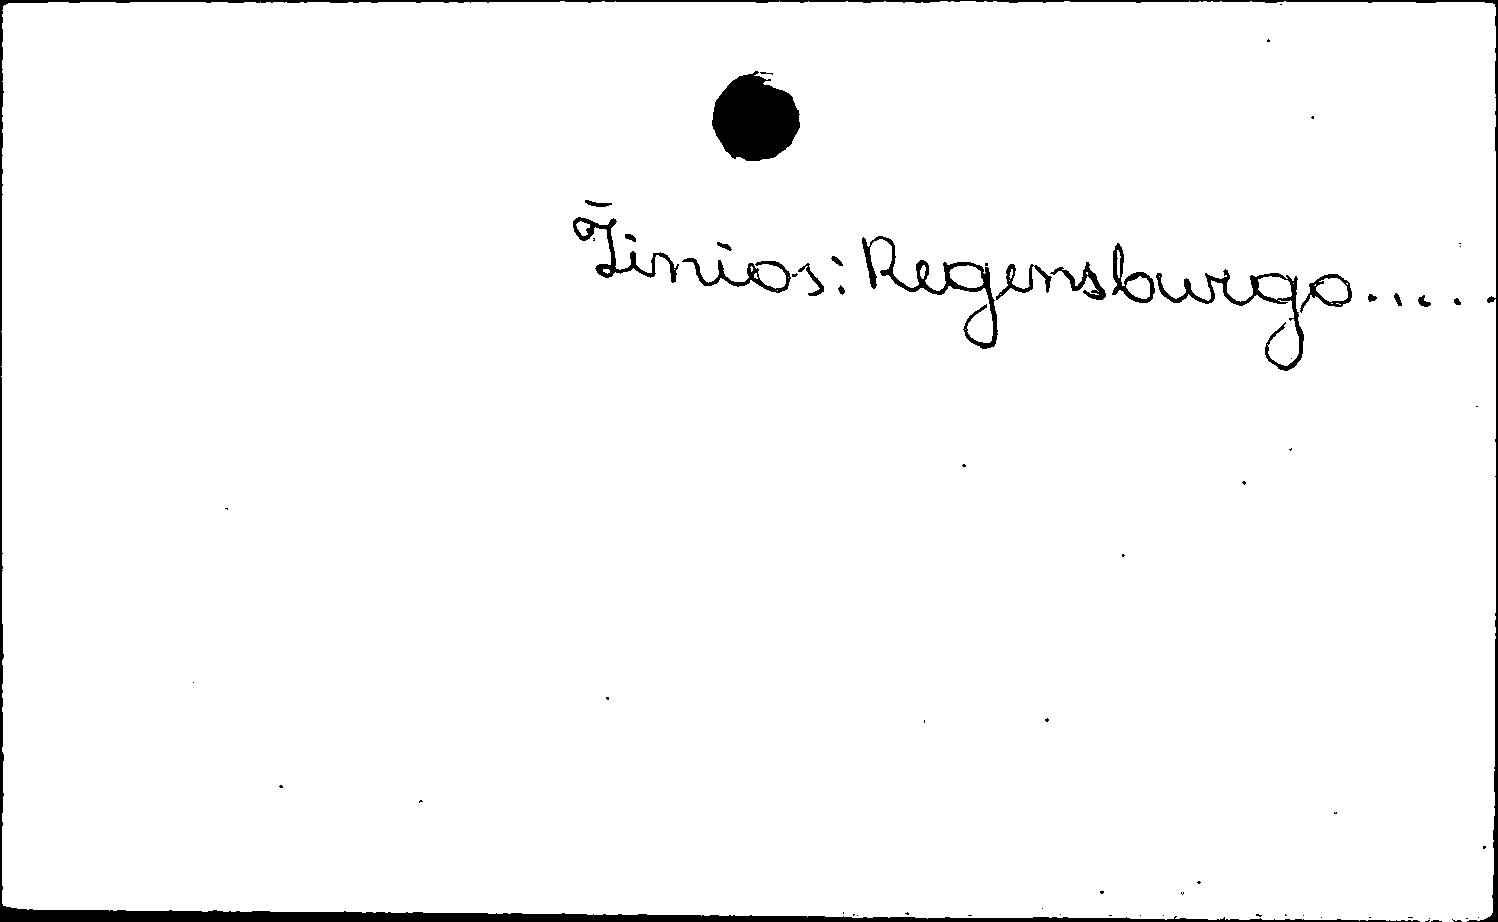 Žinios: Regensburgo.....